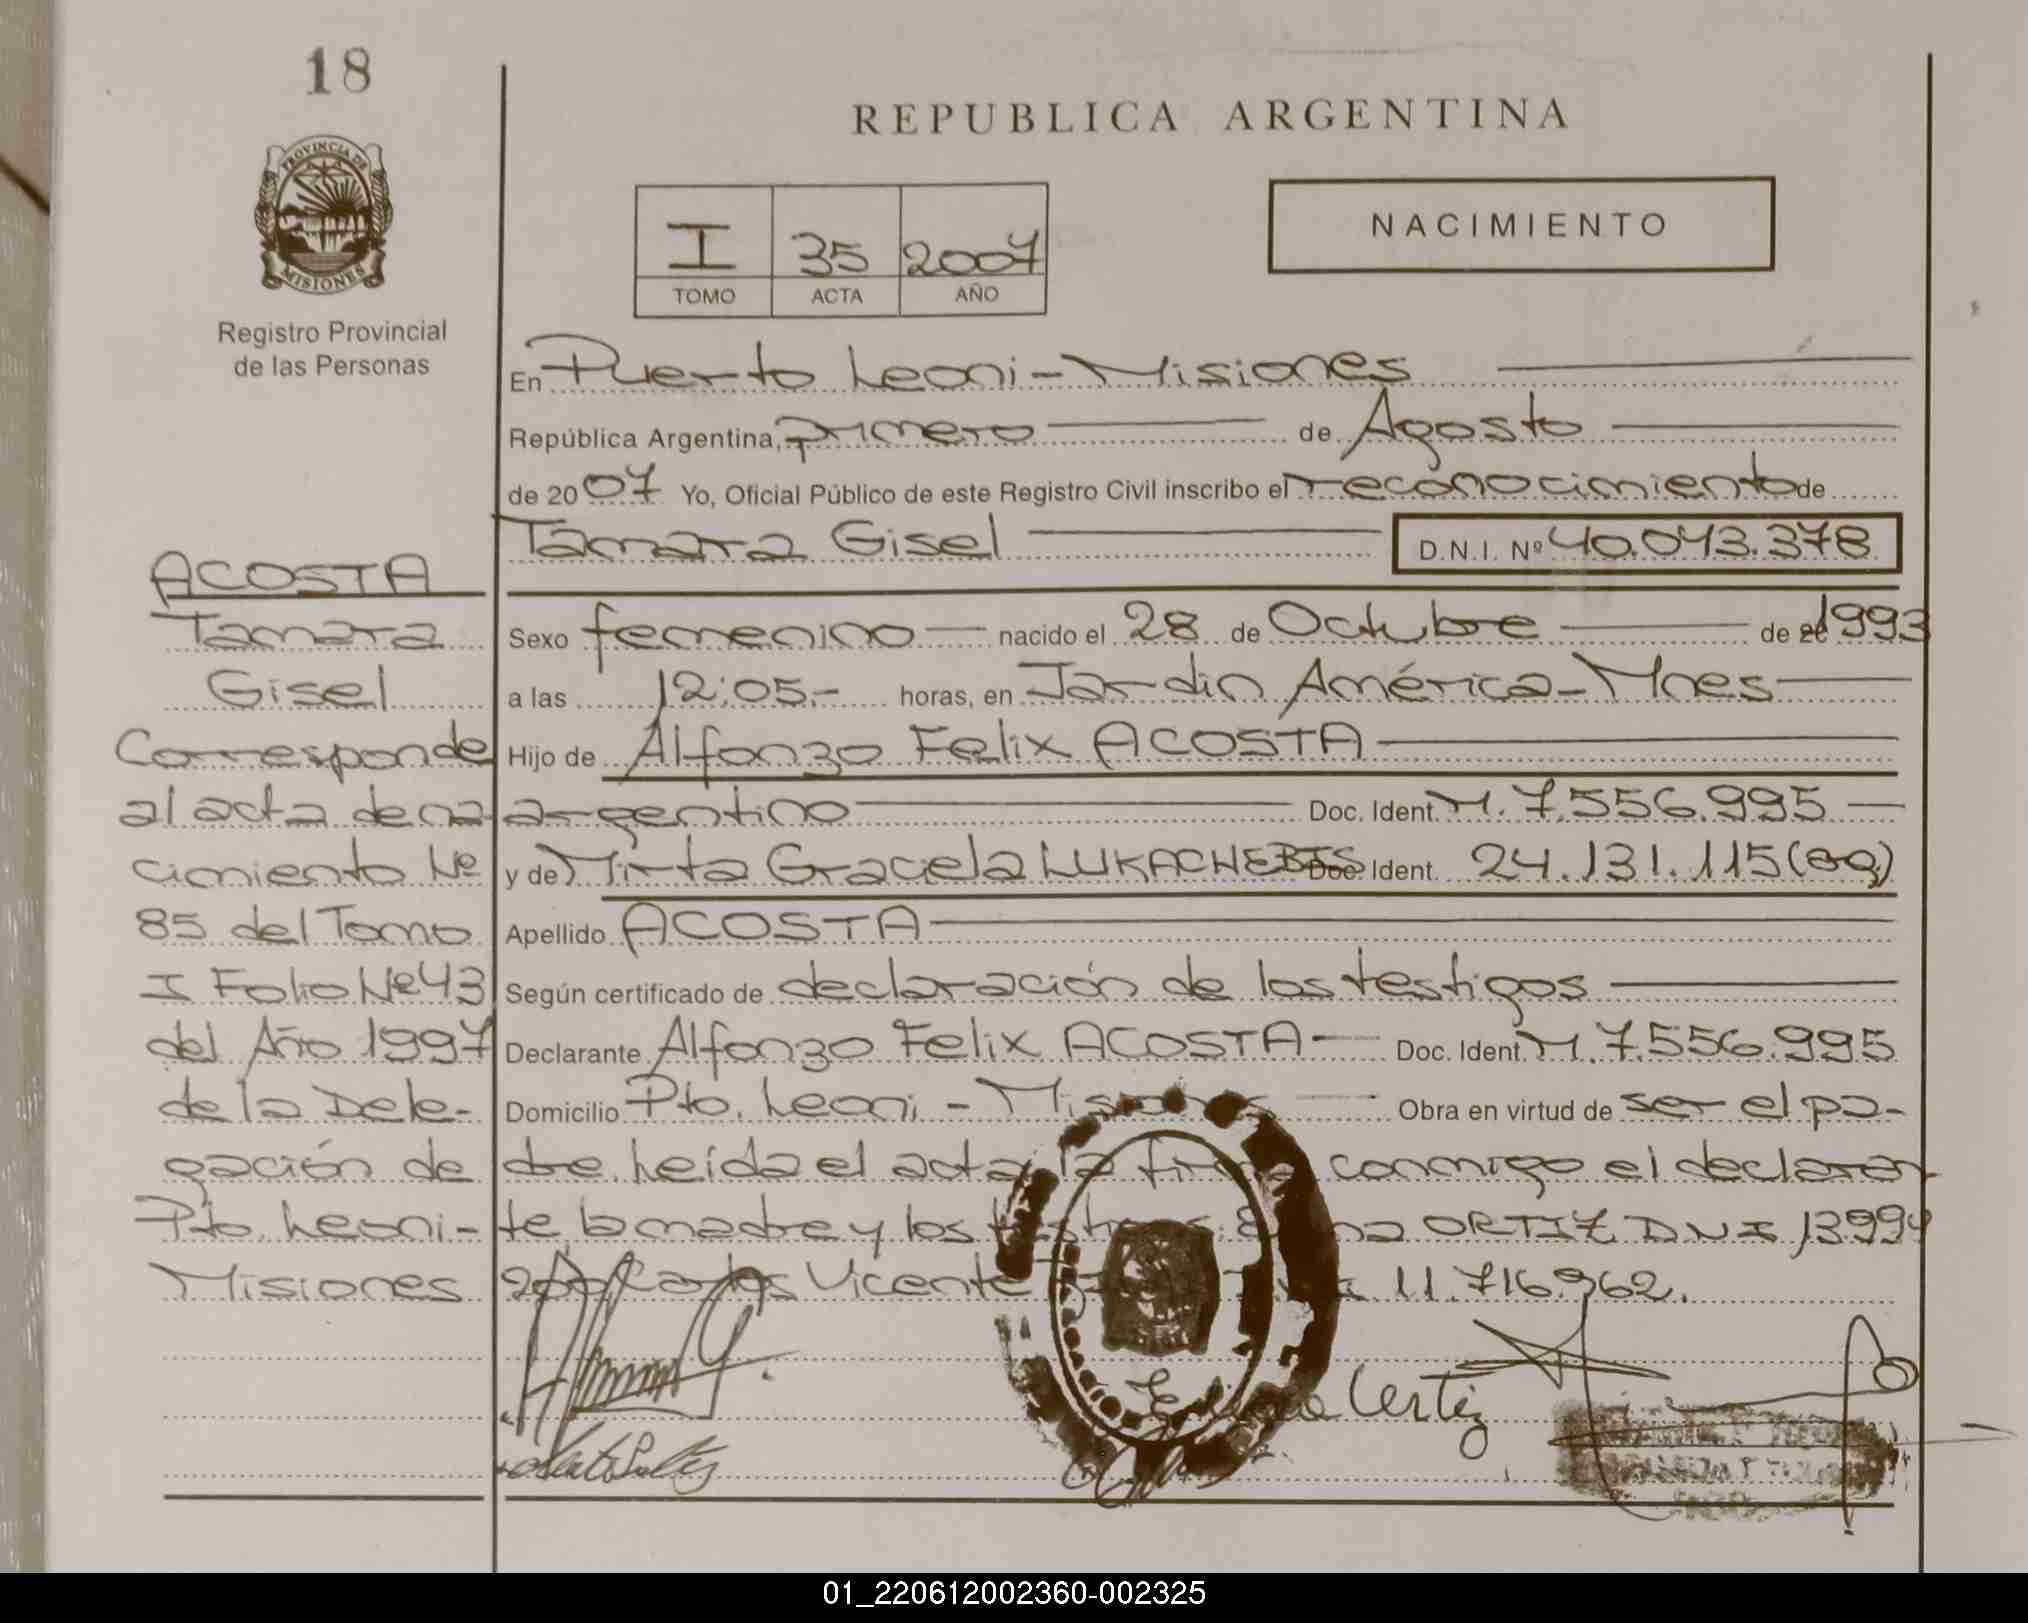 18
REPUBLICA ARGENTINA
PROVINCIA DE
MISIONES
Registro Provincial
de las Personas
I 35 2007
TOMO ACTA AÑO
NACIMIENTO
En Puerto Leoni - Misiones
República Argentina, primero de Agosto
de 2007 Yo, Oficial Público de este Registro Civil inscribo el reconocimiento de
Tamara Gisel D.N.I. Nº 40.043.378
Sexo femenino nacido el 28 de Octubre de 1993
a las 12:05.- horas, en Jardin América - Mnes
Hijo de Alfonzo Felix ACOSTA
argentino Doc. Ident. M. 7.556.995
y de Mirta Graciela Doc. Ident. 24.131.115 (ag)
Apellido ACOSTA
Según certificado de declaración de los testigos
Declarante Alfonzo Felix ACOSTA Doc. Ident. M. 7.556.995
Domicilio Pto. Leoni - Misiones Obra en virtud de ser el pa-
dre. Leída el acta, la firma conmigo el declaran-
te, la madre y los testigos: ORTIZ DNI 13994
Carlos Vicente 11.716.962.
ACOSTA
Tamara
Gisel
Corresponde
al acta de na-
cimiento Nº
85 del Tomo
I Folio Nº 43
del Año 1997
de la Dele-
gación de
Pto. Leoni -
Misiones
01_220612002360-002325